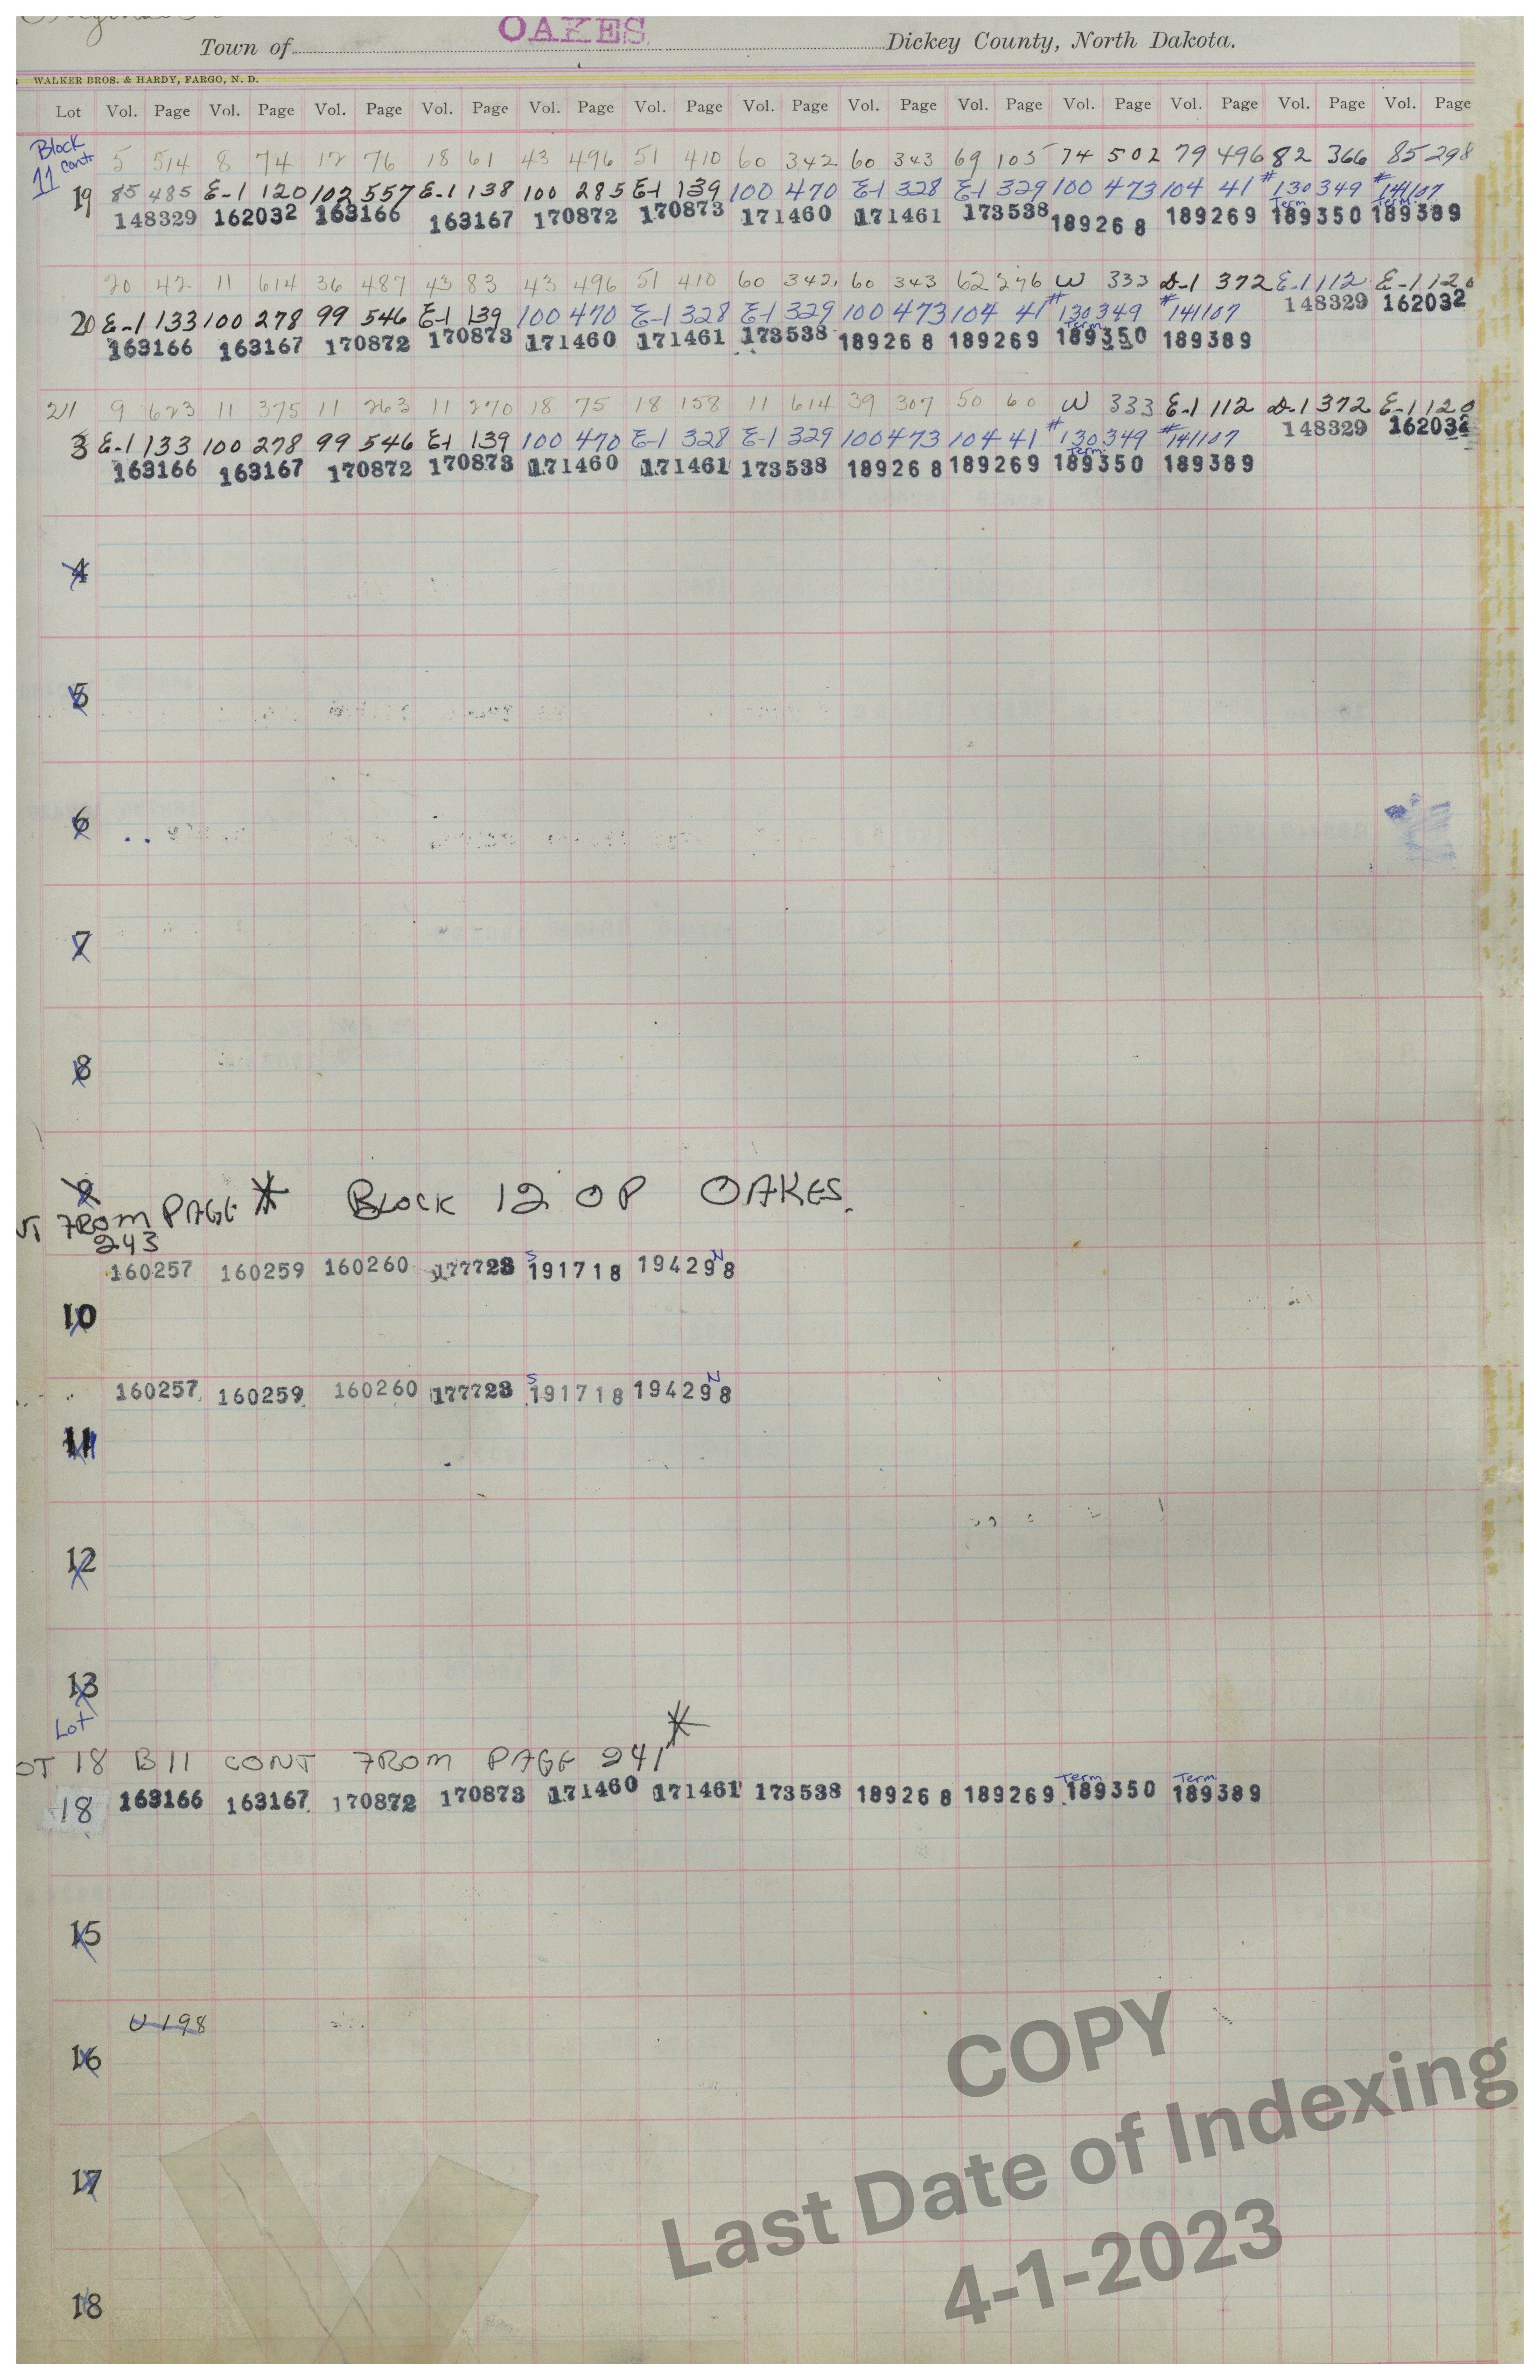 Original
Town of OAKES Dickey County, North Dakota.
WALKER BROS. & HARDY, FARGO, N. D.
Lot Vol. Page Vol. Page Vol. Page Vol. Page Vol. Page Vol. Page Vol. Page Vol. Page Vol. Page Vol. Page Vol. Page Vol. Page Vol. Page
Block 11 Cont
5 514 8 74 12 76 18 61 43 496 51 410 60 342 60 343 69 105 74 502 79 496 82 366 85 298
19 85 485 E-1 120 102 557 E-1 138 100 285 E-1 139 100 470 E-1 328 E-1 329 100 473 104 41 #130349 #141107
148329 162032 163166 163167 170872 170873 171460 171461 173538 189268 189269 Term 189350 Term. 189389
20 42 11 614 36 487 43 83 43 496 51 410 60 342 60 343 62 276 W 333 D-1 372 E-1 112 E-1 120
20 E-1 133 100 278 99 546 E-1 139 100 470 E-1 328 E-1 329 100 473 104 41 #130349 #141107 148329 162032
163166 163167 170872 170873 171460 171461 173538 189268 189269 Term 189350 189389
21 9 623 11 375 11 263 11 270 18 75 18 158 11 614 39 307 50 60 W 333 E-1 112 D-1 372 E-1 120
3 E-1 133 100 278 99 546 E-1 139 100 470 E-1 328 E-1 329 100 473 104 41 #130349 #141107 148329 162032
163166 163167 170872 170873 171460 171461 173538 189268 189269 Term. 189350 189389
4
5
6
7
8
9
FROM PAGE 243 * BLOCK 12 OP OAKES.
160257 160259 160260 177723 S 191718 194298 N
10
160257 160259 160260 177723 S 191718 194298 N
11
12
13
Lot
OT 18 B11 CONT FROM PAGE 241 *
18 163166 163167 170872 170873 171460 171461 173538 189268 189269 Term 189350 Term 189389
15
U 198
16
17
18
COPY
Last Date of Indexing
4-1-2023